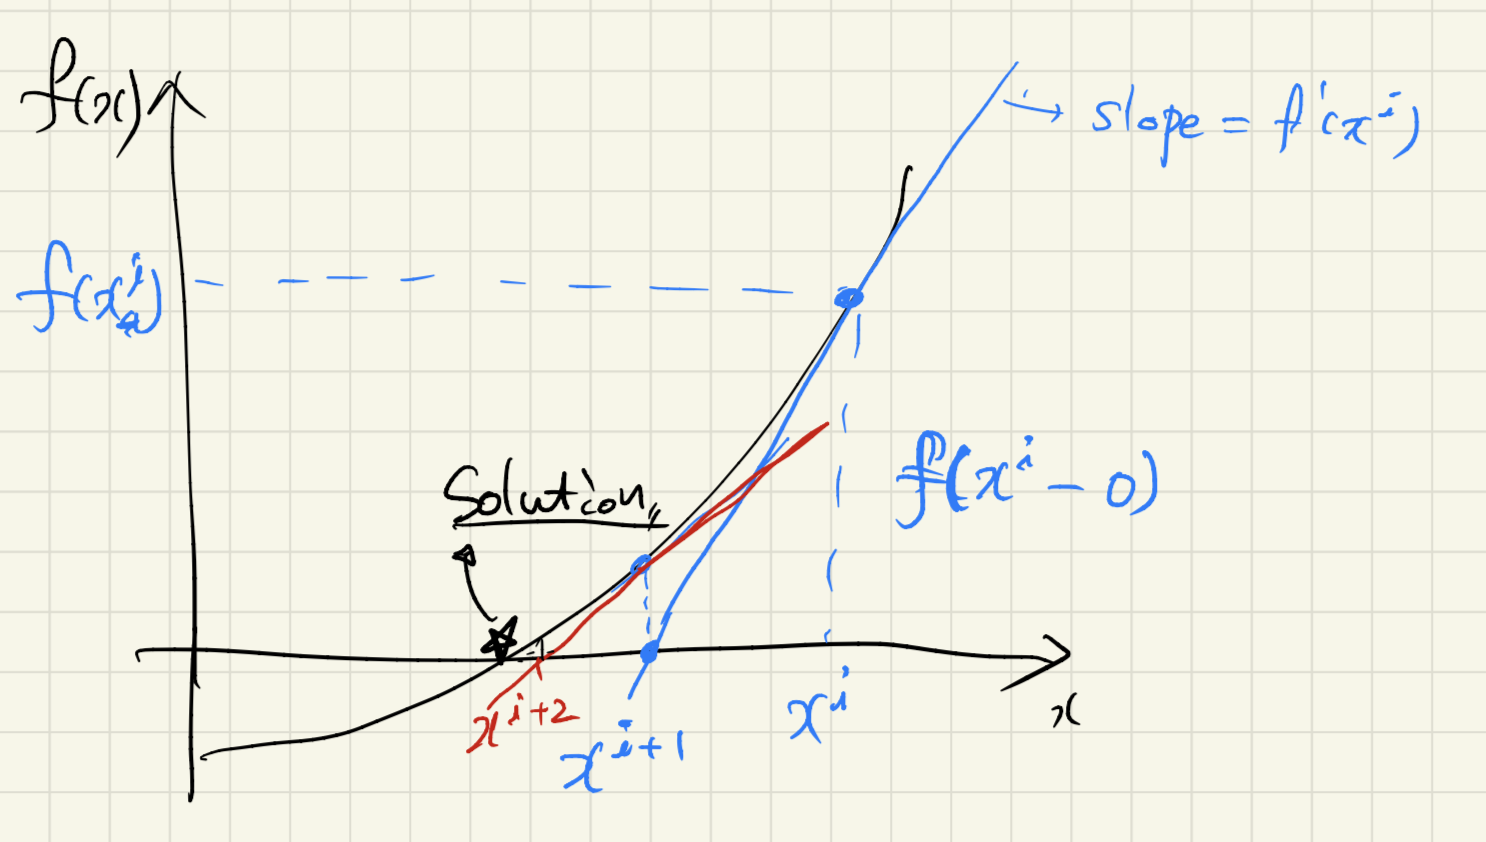 f(x)
slope = f'(xⁱ)
f(xⁱ)
f(xⁱ - 0)
Solution
xⁱ⁺²
xⁱ⁺¹
xⁱ
x